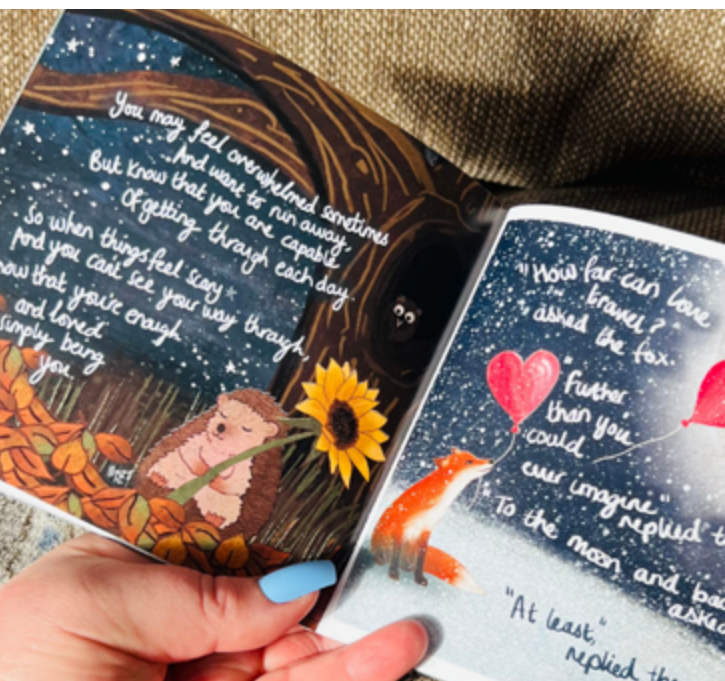 You may feel overwhelmed sometimes
And want to run away,
But know that you are capable
Of getting through each day.
So when things feel scary
And you can't see your way through,
now that you're enough
and loved
simply being
you.
"How far can love
travel?"
asked the fox.
"Further
than you
could
ever imagine"
replied
"To the moon and
asked
"At least,"
replied